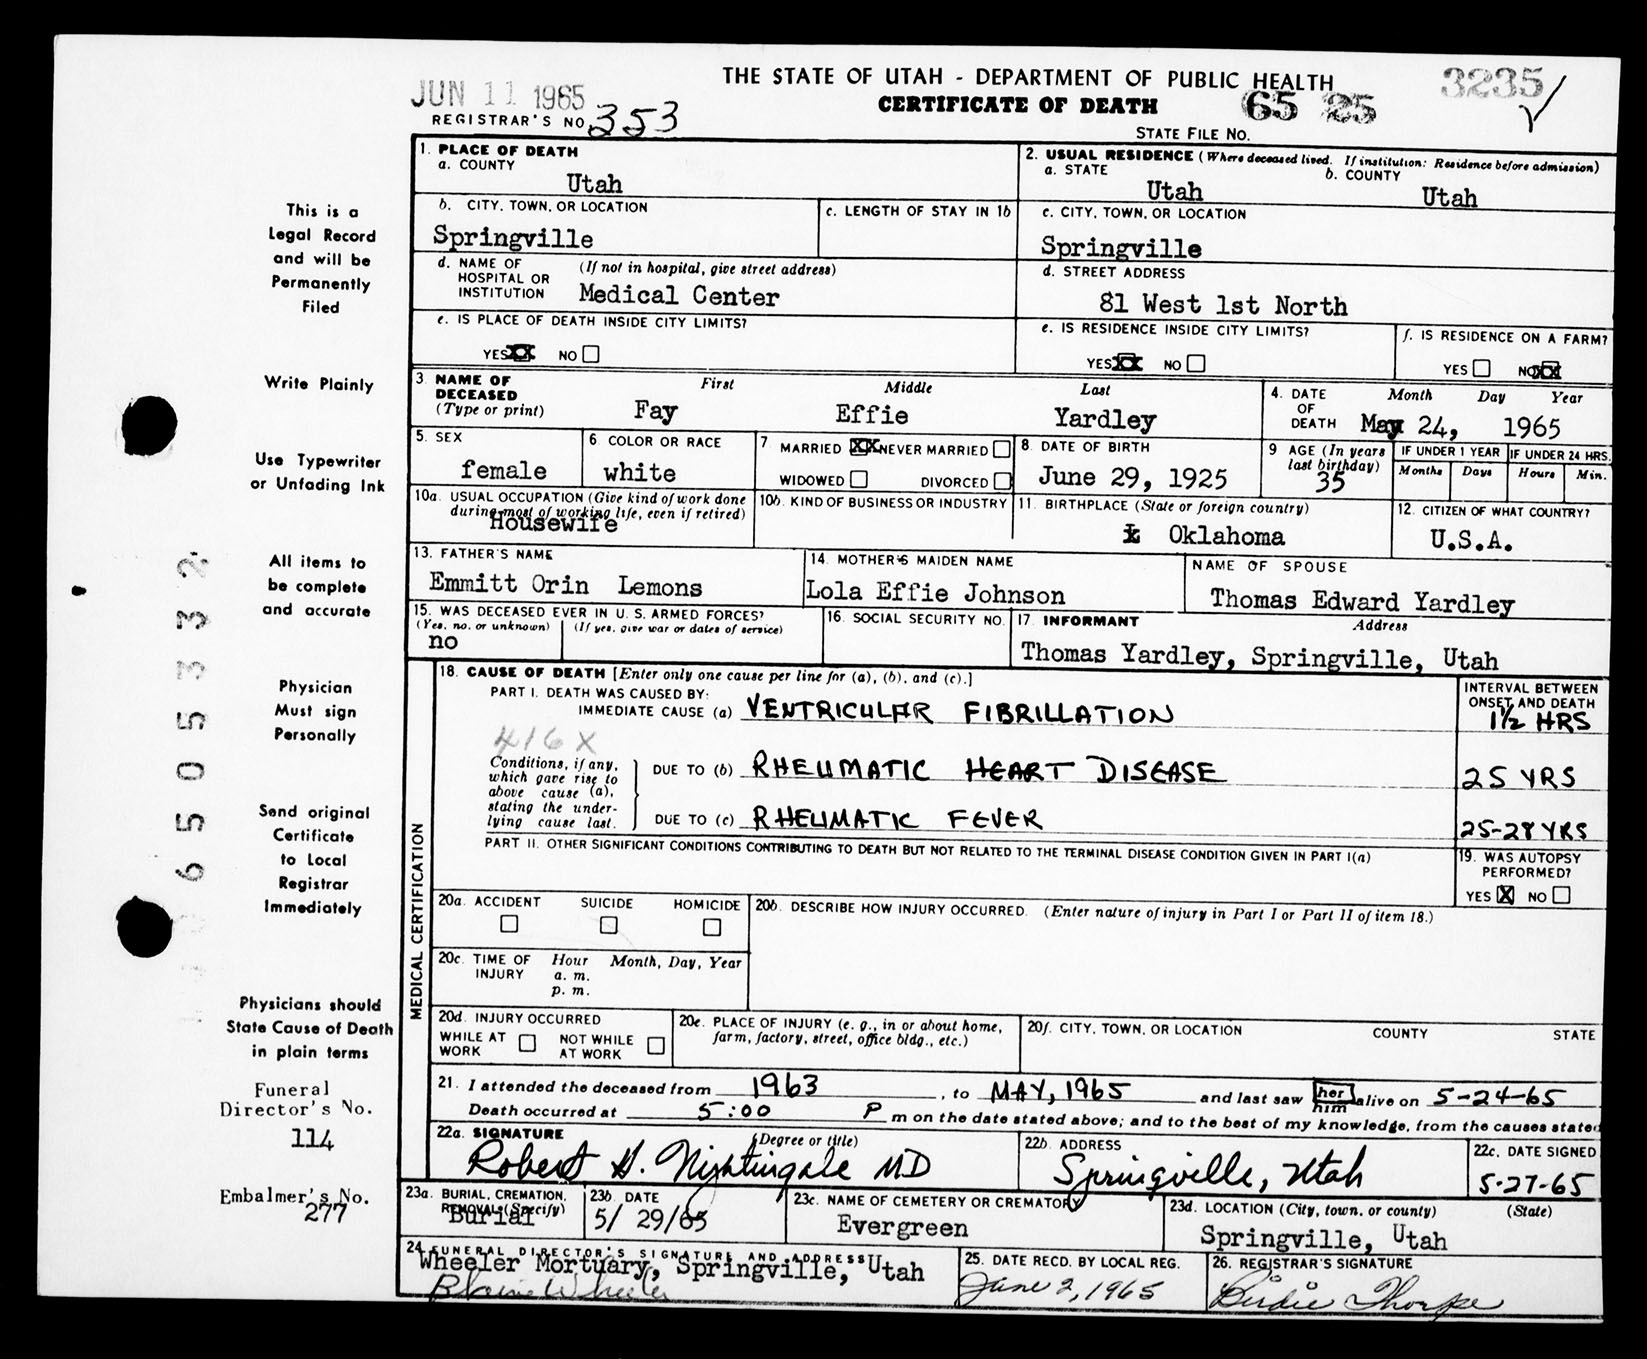 JUN 11 1965
THE STATE OF UTAH - DEPARTMENT OF PUBLIC HEALTH
3235
CERTIFICATE OF DEATH
65 25
REGISTRAR'S NO. 353
STATE FILE NO.
1. PLACE OF DEATH
a. COUNTY
Utah
2. USUAL RESIDENCE (Where deceased lived. If institution: Residence before admission)
a. STATE
b. COUNTY
Utah
Utah
b. CITY, TOWN, OR LOCATION
c. LENGTH OF STAY IN 1b
c. CITY, TOWN, OR LOCATION
Springville
Springville
d. NAME OF HOSPITAL OR INSTITUTION
(If not in hospital, give street address)
Medical Center
d. STREET ADDRESS
81 West 1st North
e. IS PLACE OF DEATH INSIDE CITY LIMITS?
YES XX NO
e. IS RESIDENCE INSIDE CITY LIMITS?
YES XX NO
f. IS RESIDENCE ON A FARM?
YES NO XX
3. NAME OF DECEASED (Type or print)
First Middle Last
Fay Effie Yardley
4. DATE OF DEATH
Month Day Year
May 24, 1965
5. SEX
female
6. COLOR OR RACE
white
7 MARRIED XX NEVER MARRIED
WIDOWED DIVORCED
8. DATE OF BIRTH
June 29, 1925
9 AGE (In years last birthday)
35
IF UNDER 1 YEAR
Months Days
IF UNDER 24 HRS.
Hours Min.
10a. USUAL OCCUPATION (Give kind of work done during most of working life, even if retired)
Housewife
10b. KIND OF BUSINESS OR INDUSTRY
11. BIRTHPLACE (State or foreign country)
Oklahoma
12. CITIZEN OF WHAT COUNTRY?
U.S.A.
13. FATHER'S NAME
Emmitt Orin Lemons
14. MOTHER'S MAIDEN NAME
Lola Effie Johnson
NAME OF SPOUSE
Thomas Edward Yardley
15. WAS DECEASED EVER IN U. S. ARMED FORCES?
(Yes, no, or unknown) (If yes, give war or dates of service)
no
16. SOCIAL SECURITY NO.
17. INFORMANT Address
Thomas Yardley, Springville, Utah
MEDICAL CERTIFICATION
18. CAUSE OF DEATH [Enter only one cause per line for (a), (b), and (c).]
PART I. DEATH WAS CAUSED BY:
IMMEDIATE CAUSE (a) VENTRICULAR FIBRILLATION
INTERVAL BETWEEN ONSET AND DEATH
1½ HRS
416X
Conditions, if any, which gave rise to above cause (a), stating the underlying cause last.
DUE TO (b) RHEUMATIC HEART DISEASE
25 YRS
DUE TO (c) RHEUMATIC FEVER
25-28 YRS
PART II. OTHER SIGNIFICANT CONDITIONS CONTRIBUTING TO DEATH BUT NOT RELATED TO THE TERMINAL DISEASE CONDITION GIVEN IN PART I(a)
19. WAS AUTOPSY PERFORMED?
YES X NO
20a. ACCIDENT SUICIDE HOMICIDE
20b. DESCRIBE HOW INJURY OCCURRED. (Enter nature of injury in Part I or Part II of item 18.)
20c. TIME OF INJURY
Hour Month, Day, Year
a. m.
p. m.
20d. INJURY OCCURRED
WHILE AT WORK NOT WHILE AT WORK
20e. PLACE OF INJURY (e. g., in or about home, farm, factory, street, office bldg., etc.)
20f. CITY, TOWN, OR LOCATION COUNTY STATE
21. I attended the deceased from 1963, to MAY, 1965 and last saw her him alive on 5-24-65
Death occurred at 5:00 P m on the date stated above; and to the best of my knowledge, from the causes stated
22a. SIGNATURE (Degree or title)
Robert H. Nightingale MD
22b. ADDRESS
Springville, Utah
22c. DATE SIGNED
5-27-65
23a. BURIAL, CREMATION, REMOVAL (Specify)
Burial
23b. DATE
5/ 29/65
23c. NAME OF CEMETERY OR CREMATORY
Evergreen
23d. LOCATION (City, town, or county) (State)
Springville, Utah
24 FUNERAL DIRECTOR'S SIGNATURE AND ADDRESS
Wheeler Mortuary, Springville, Utah
Blaine Wheeler
25. DATE RECD. BY LOCAL REG.
June 2, 1965
26. REGISTRAR'S SIGNATURE
Birdie Thorpe
This is a
Legal Record
and will be
Permanently
Filed
Write Plainly
Use Typewriter
or Unfading Ink
All items to
be complete
and accurate
Physician
Must sign
Personally
Send original
Certificate
to Local
Registrar
Immediately
Physicians should
State Cause of Death
in plain terms
Funeral
Director's No.
114
Embalmer's No.
277
6505332